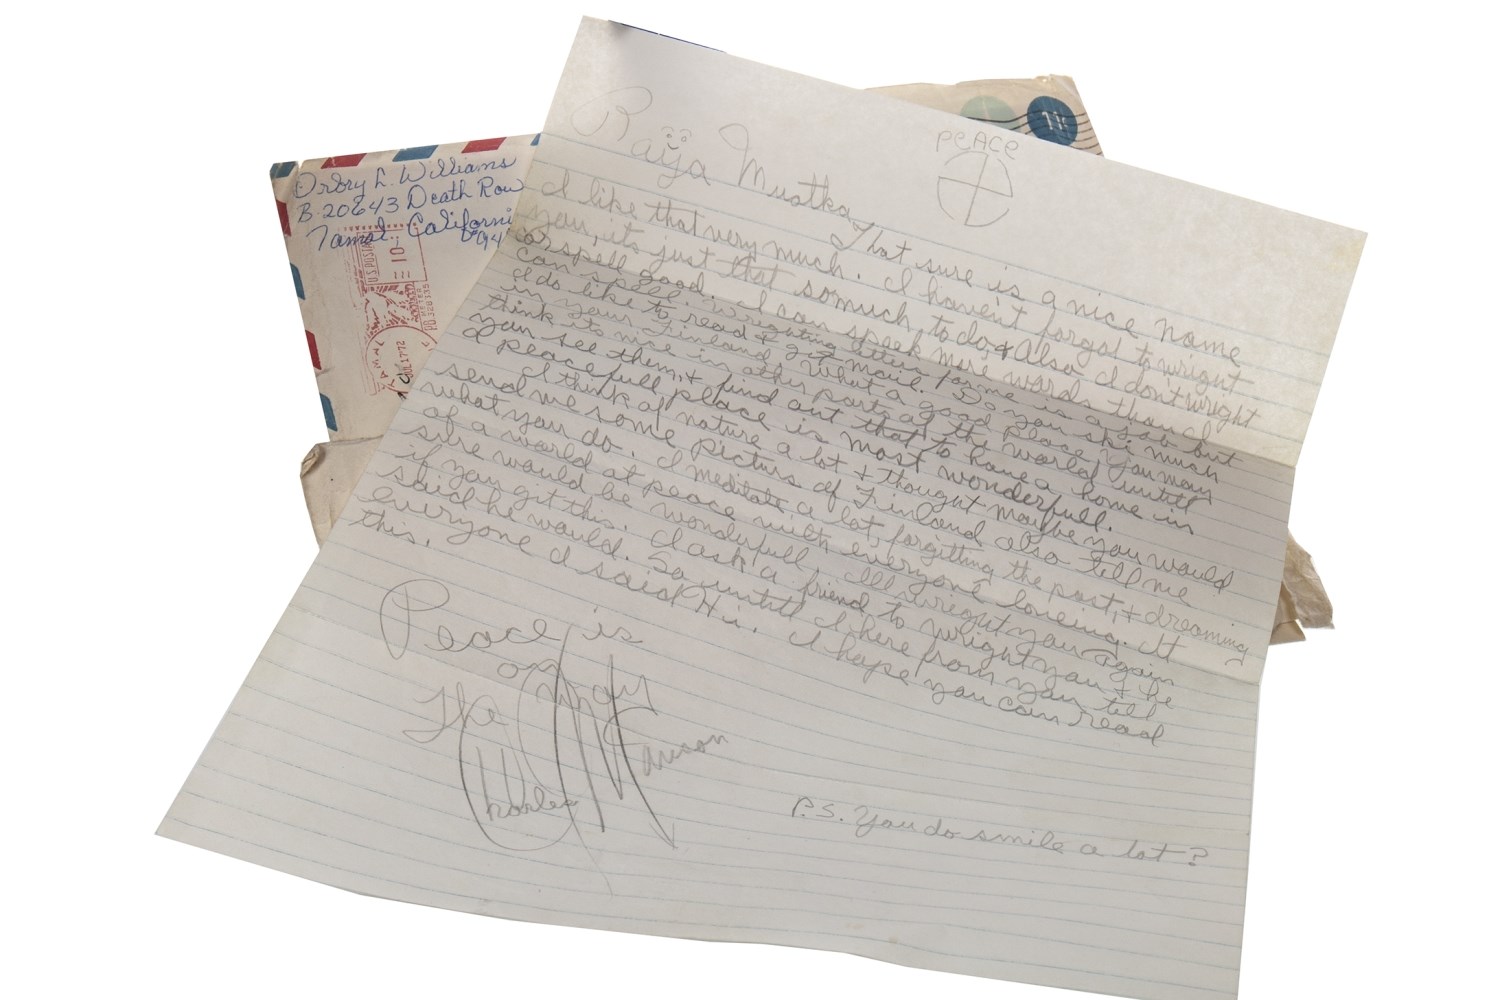 PEACE
Raija Mustka
That sure is a nice name
I like that very much. I haven't forgot to wright
you, it's just that somuch to do, & Also I don't wright
or spell good. I can speek more words than I
can spell. Wrighting letters for me is a job but
I do like to read & get mail. Do you ski much
in your Finland, What a good place. You may
think its nice in other parts of the world untill
you see them, & find out that to have a home in
a peacefull place is most wonderfull.
I think of nature a lot & thought maybe you would
send me some picturs of Finland also tell me
what you do. I meditate a lot, forgitting the past, & dreaming
of a world at peace with everyone loveing. It
sure would be wonderfull, Ill wright you again
if you get this. I ask a friend to wright you & he
said he would. So untill I here from you tell
everyone I said Hi. I hope you can read
this.
Peace is
only
The
Charles Manson
P.S. You do smile a lot?
L. Williams
B-20643 Death Row
Tamal, Californi
U.S. POSTA
10